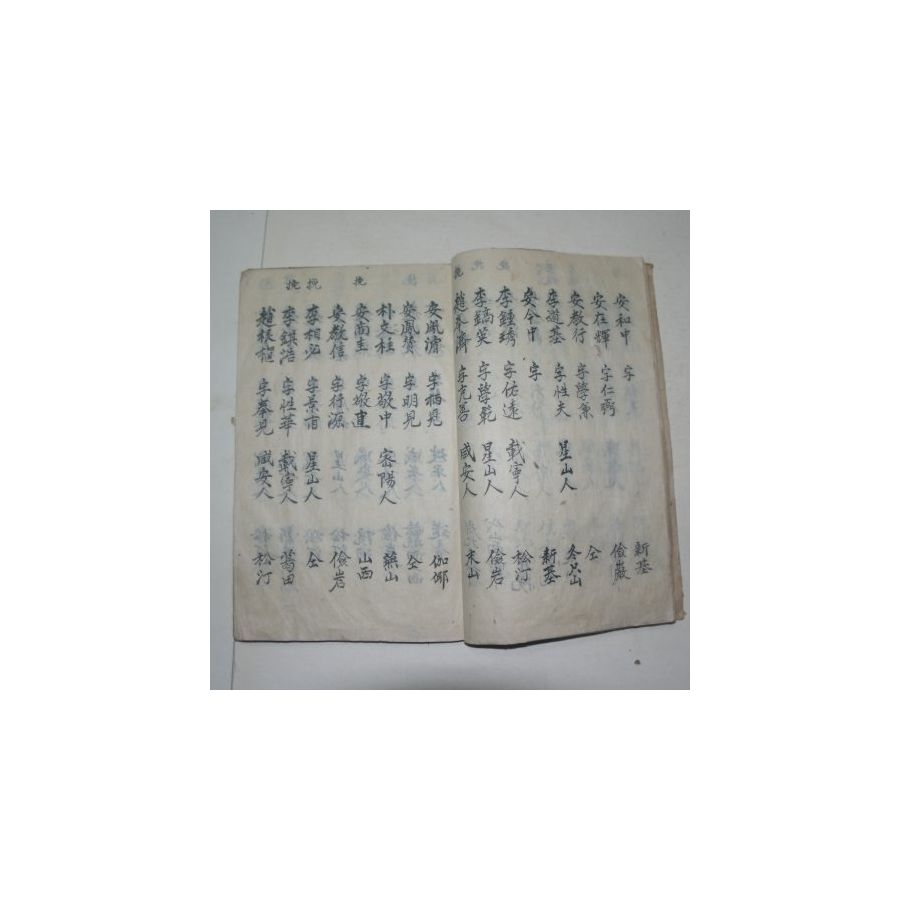 安和中 字 新基
安在輝 字仁 儉巖
安敎行 字學 仝
李 基 字性夫 星山人 冬只山
安今中 字 新基
李鍾琇 字佑遠 載寧人 松汀
挽 李鎬英 字學乾 星山人 儉岩
挽 趙 濟 字允善 咸安人 末山
安鳳濬 字 見 伽倻
安鳳贊 字明見 仝
朴文柱 字敬中 密陽人 藥山
挽 安尚圭 字 建 山西
安敎信 字行源 儉岩
挽 李相弼 字景甫 星山人 仝
挽 李鎭浩 字性華 載寧人 葛田
趙 字奉見 咸安人 松汀